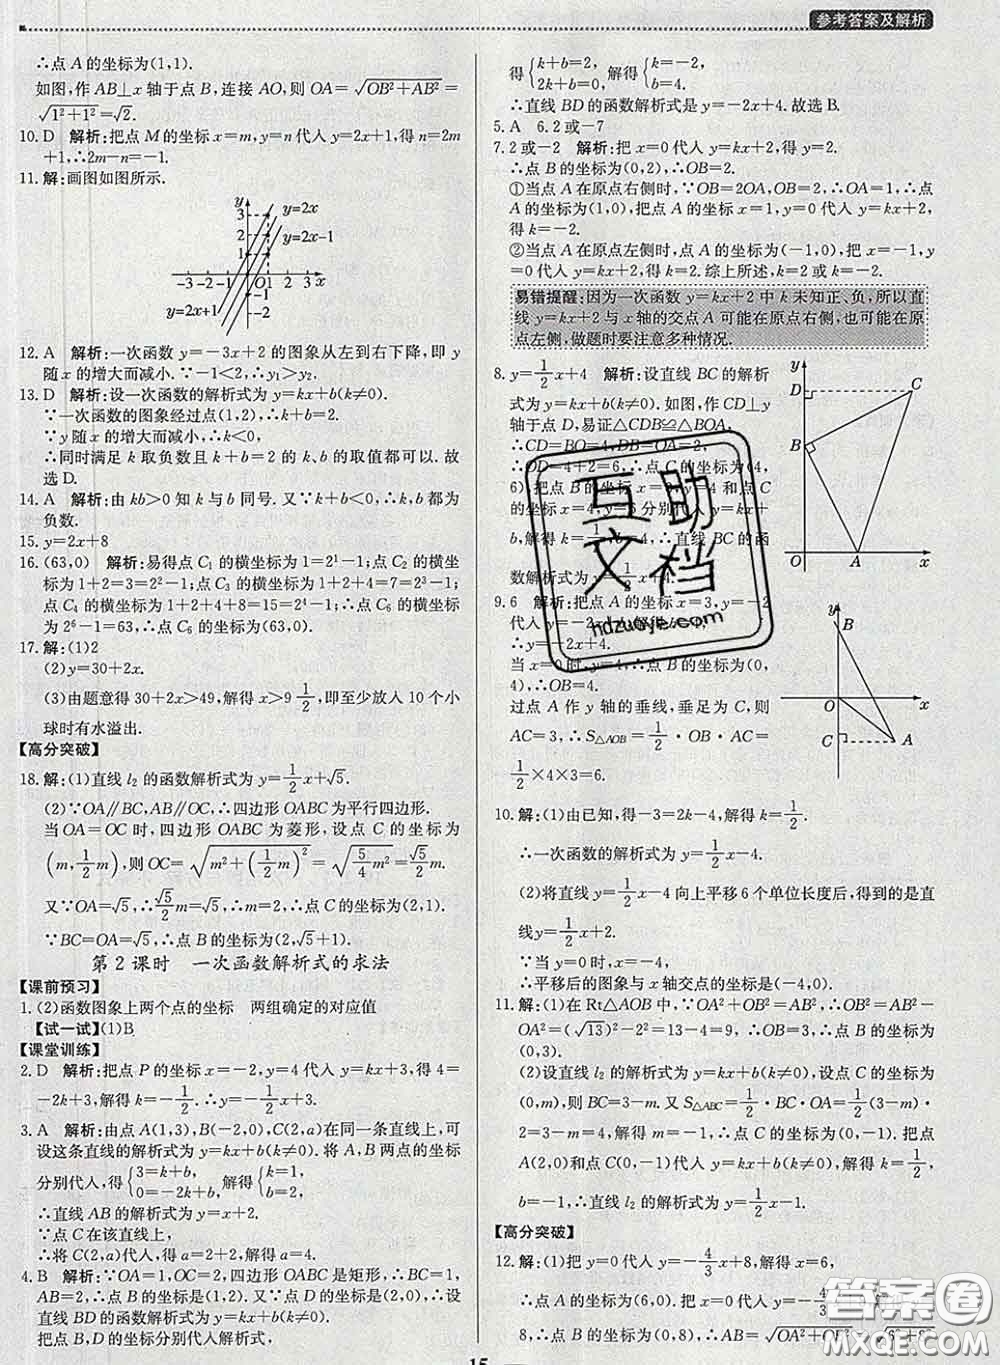 参考答案及解析
∴点 A 的坐标为(1,1).
如图,作 AB⊥x 轴于点 B,连接 AO,则 OA=√(OB²+AB²)=
√(1²+1²)=√2.
10. D 解析:把点 M 的坐标 x=m,y=n 代入 y=2x+1,得 n=2m
+1,∴2m-n=-1.
11. 解:画图如图所示.
y
y=2x
y=2x-1
3
2
1
-3 -2 -1 O 1 2 3 x
-1
-2
y=2x+1
12. A 解析:一次函数 y=-3x+2 的图象从左到右下降,即 y
随 x 的增大而减小. ∵-1<2,∴y₁>y₂.
13. D 解析:设一次函数的解析式为 y=kx+b(k≠0).
∵一次函数的图象经过点(1,2),∴k+b=2.
∵y 随 x 的增大而减小,∴k<0,
∴同时满足 k 取负数且 k+b=2 的 k,b 的取值都可以. 故
选 D.
14. A 解析:由 kb>0 知 k 与 b 同号. 又∵k+b<0,∴k,b 都为
负数.
15. y=2x+8
16. (63,0) 解析:易得点 C₁ 的横坐标为 1=2¹-1;点 C₂ 的横坐
标为 1+2=3=2²-1;点 C₃ 的横坐标为 1+2+4=7=2³-1;
点 C₄ 的横坐标为 1+2+4+8=15=2⁴-1;点 C₆ 的横坐标
为 2⁶-1=63,∴点 C₆ 的坐标为(63,0).
17. 解:(1)2
(2)y=30+2x.
(3)由题意得 30+2x>49,解得 x>9 1/2,即至少放入 10 个小
球时有水溢出.
【高分突破】
18. 解:(1)直线 l₂ 的函数解析式为 y=1/2x+√5.
(2)∵OA∥BC,AB∥OC,∴四边形 OABC 为平行四边形.
当 OA=OC 时,四边形 OABC 为菱形,设点 C 的坐标为
(m,1/2m),则 OC=√(m²+(1/2m)²)=√(5/4m²)=√5/2m.
又∵OA=√5,∴√5/2m=√5,∴m=2,∴点 C 的坐标为(2,1).
∵BC=OA=√5,∴点 B 的坐标为(2,√5+1).
第 2 课时 一次函数解析式的求法
【课前预习】
1. (2)函数图象上两个点的坐标 两组确定的对应值
【试一试】(1)B
【课堂训练】
2. D 解析:把点 P 的坐标 x=-2,y=4 代入 y=kx+3,得 4=
-2k+3,解得 k=-1/2. ∴y=-1/2x+3.
3. A 解析:由点 A(1,3),B(-2,0),C(2,a)在同一条直线上,可
设这条直线的解析式为 y=kx+b(k≠0). 将 A,B 两点的坐标
分别代入,得{3=k+b, 0=-2k+b, 解得{k=1, b=2.
∴直线 AB 的解析式为 y=x+2.
∵点 C 在该直线上,
∴将 C(2,a)代入,得 a=2+2,解得 a=4.
4. B 解析:∵OA=1,OC=2,四边形 OABC 是矩形,∴BC=1,
AB=2,∴点 B 的坐标为(1,2),点 D 的坐标为(2,0),∴设
直线 BD 的函数解析式为 y=kx+b(k≠0).
把点 B,D 的坐标分别代入解析式,
得{k+b=2, 2k+b=0, 解得{k=-2, b=4.
∴直线 BD 的函数解析式是 y=-2x+4. 故选 B.
5. A 6. 2 或-7
7. 2 或-2 解析:把 x=0 代入 y=kx+2,得 y=2.
∴点 B 的坐标为(0,2),∴OB=2.
①当点 A 在原点右侧时,∵OB=2OA,OB=2,∴OA=1,∴点
A 的坐标为(1,0),把点 A 的坐标 x=1,y=0 代入 y=kx+2,得
k=-2.
②当点 A 在原点左侧时,点 A 的坐标为(-1,0),把 x=-1,y
=0 代入 y=kx+2,得 k=2. 综上所述,k=2 或 k=-2.
易错提醒:因为一次函数 y=kx+2 中 k 未知正、负,所以直
线 y=kx+2 与 x 轴的交点 A 可能在原点右侧,也可能在原
点左侧,做题时要注意多种情况.
8. y=1/2x+4 解析:设直线 BC 的解析
式为 y=kx+b(k≠0). 如图,作 CD⊥y
轴于点 D,易证△CDB≌△BOA,
∴CD=BO=4,DB=OA=2.
∴OD=4+2=6,∴点 C 的坐标为(4,
6). 把点 B 的坐标 x=0,y=4 和点 C
的坐标 x=4,y=6 分别代入 y=kx+
b,解得 k=1/2,b=4,∴直线 BC 的函
数解析式为 y=1/2x+4.
y
D
C
B
O
A
x
9. 6 解析:把点 A 的坐标 x=3,y=-2
代入 y=-2x+b,解得 b=4.
∴y=-2x+4.
当 x=0 时,y=4,∴点 B 的坐标为(0,
4),∴OB=4.
过点 A 作 y 轴的垂线,垂足为 C,则
AC=3,∴S△AOB=1/2·OB·AC=
1/2×4×3=6.
y
B
O
x
C
A
10. 解:(1)由已知,得-3=2k-4,解得 k=1/2.
∴一次函数的解析式为 y=1/2x-4.
(2)将直线 y=1/2x-4 向上平移 6 个单位长度后,得到的是直
线 y=1/2x+2. ∵当 y=0 时,x=-4,
∴平移后的图象与 x 轴交点的坐标为(-4,0).
11. 解:(1)在 Rt△AOB 中,∵OA²+OB²=AB²,∴OB²=AB²-
OA²=(√13)²-2²=13-4=9,∴OB=3,∴点 B 的坐标为
(0,3).
(2)设直线 l₂ 的解析式为 y=kx+b(k≠0),设点 C 的坐标为
(0,m),则 BC=3-m. 又∵S△ABC=1/2·BC·OA=1/2(3-m)·
2=3-m=4,解得 m=-1,∴点 C 的坐标为(0,-1). 把点
A(2,0)和点 C(0,-1)代入 y=kx+b(k≠0),解得 k=1/2,
b=-1,∴直线 l₂ 的解析式为 y=1/2x-1.
【高分突破】
12. 解:(1)把 y=0 代入 y=-4/3x+8,解得 x=6,
∴点 A 的坐标为(6,0). 把 x=0 代入 y=-4/3
8,∴点 B 的坐标为(0,8),∴AB=√(OA²+OB²)=√(6²+8²)
15
互助文档
hdzuoye.com
答案圈
MXQE.COM